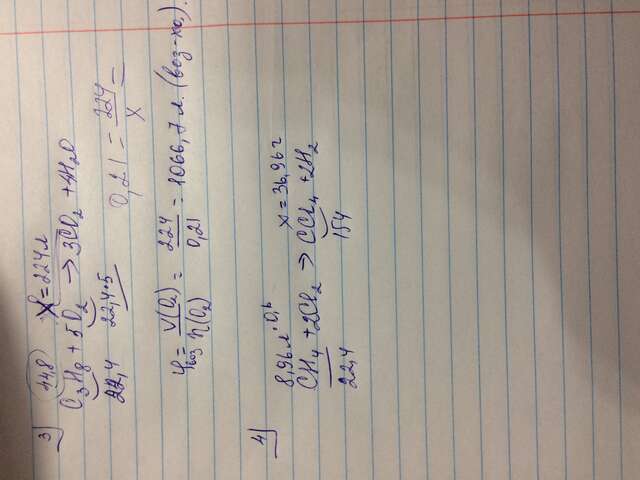 3) 44,8 x = 224 л
C3H8 + 5O2 → 3CO2 + 4H2O
22,4 22,4·5 0,21 = 224/x =
φвоз = V(O2)/η(O2) = 224/0,21 = 1066,7 л. (воз-ха).
4) 8,96 л · 0,6 x = 36,96 г
CH4 + 2Cl2 → CCl4 + 2H2
22,4 154